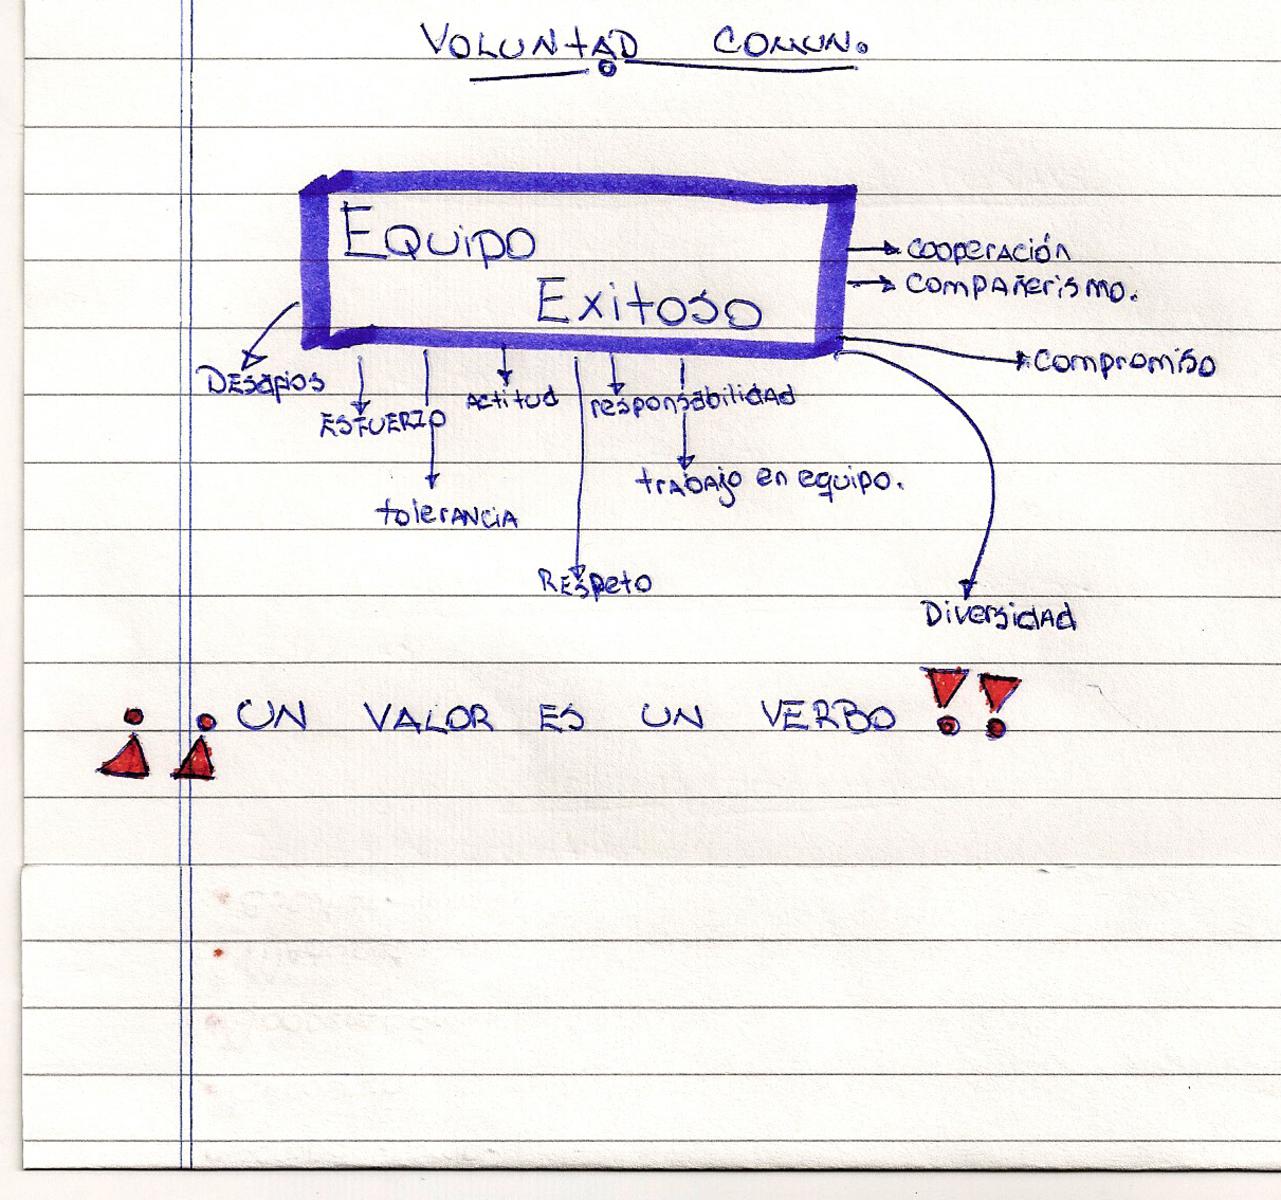 VOLUNTAD COMUN.
EQUIPO
EXITOSO
→ cooperación
→ compañerismo.
compromiso
Desafios
ESFUERZO
Actitud
responsabilidad
tolerancia
trabajo en equipo.
Respeto
Diversidad
¡¡ UN VALOR ES UN VERBO !!